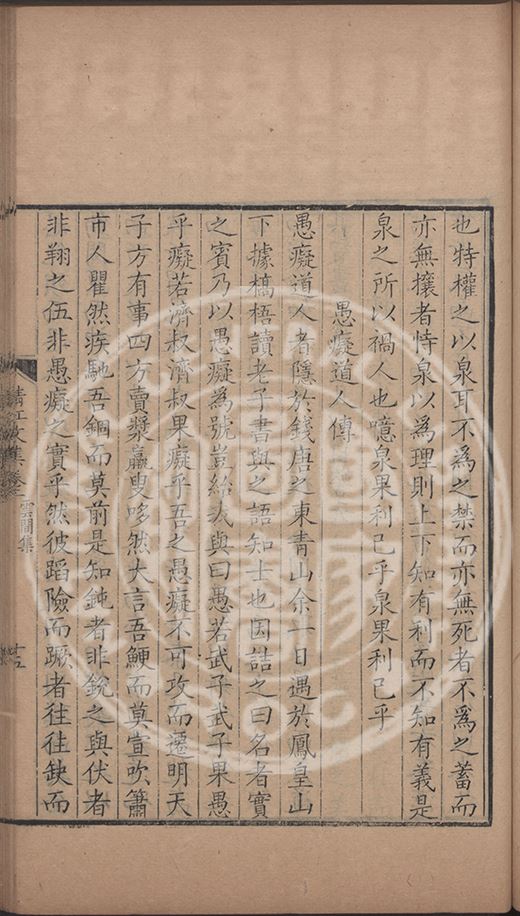 也特權之以泉耳不為之禁而亦無死者不爲之蓄而
亦無攘者恃泉以爲理則上下知有利而不知有義是
泉之所以禍人也噫泉果利已乎泉果利已乎
愚癡道人傳
愚癡道人者隱於錢唐之東青山余一日遇於鳳皇山
下據槁梧讀老子書與之語知士也因詰之曰名者實
之賓乃以愚癡為號豈紿我與曰愚若武子武子果愚
乎癡若濟叔濟叔果癡乎吾之愚癡不可攻而遷明天
子方有事四方賣漿贏叟哆然大言吾鯁而莫啻吹簫
市人瞿然疾馳吾錮而莫前是知鈍者非銳之與伏者
非翔之伍非愚癡之實乎然彼蹈險而蹶者往往缺而
清江文集卷之
雲間集
十五